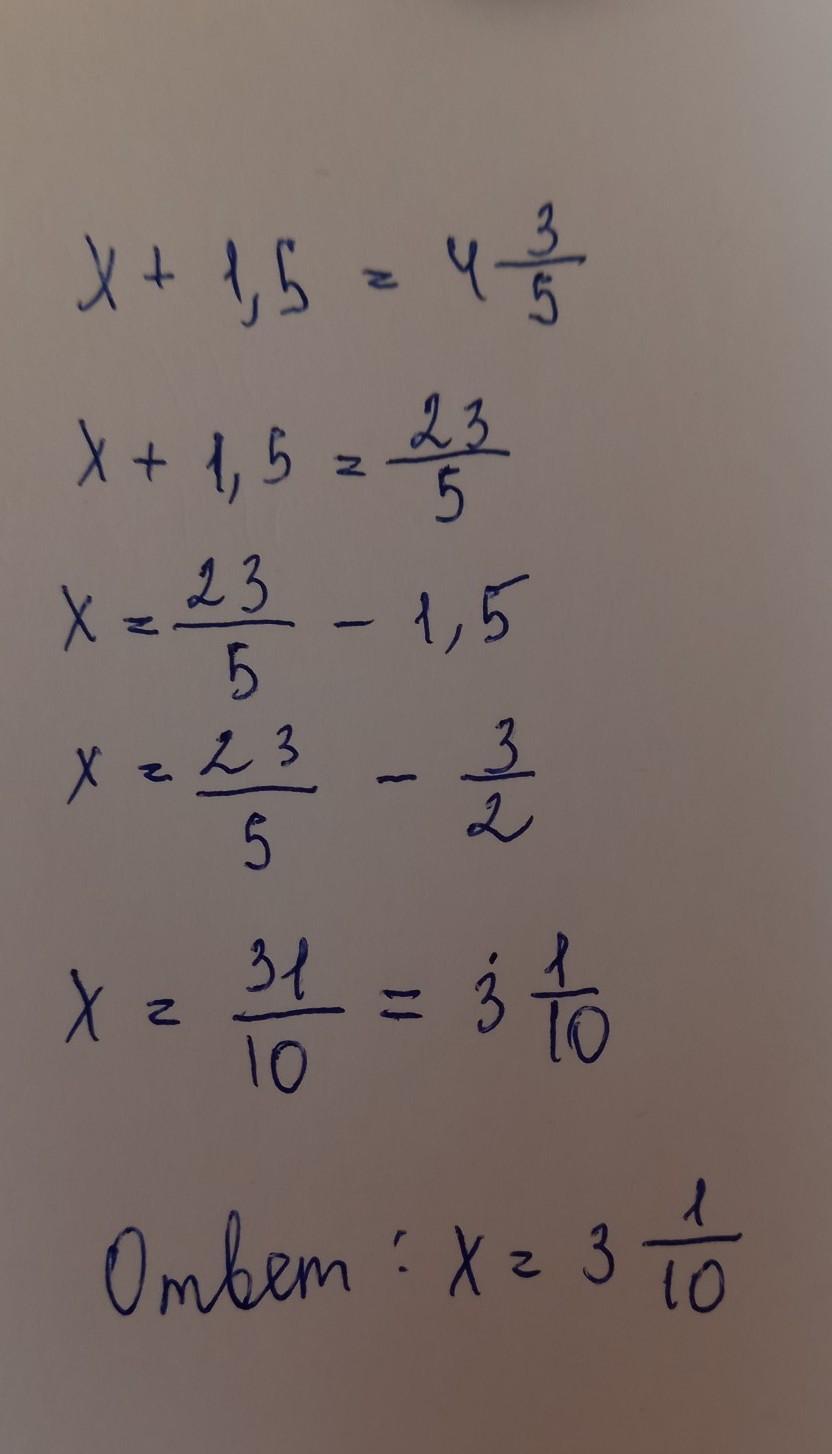 x + 1,5 = 4 3/5
x + 1,5 = 23/5
x = 23/5 - 1,5
x = 23/5 - 3/2
x = 31/10 = 3 1/10
Ответ: x = 3 1/10